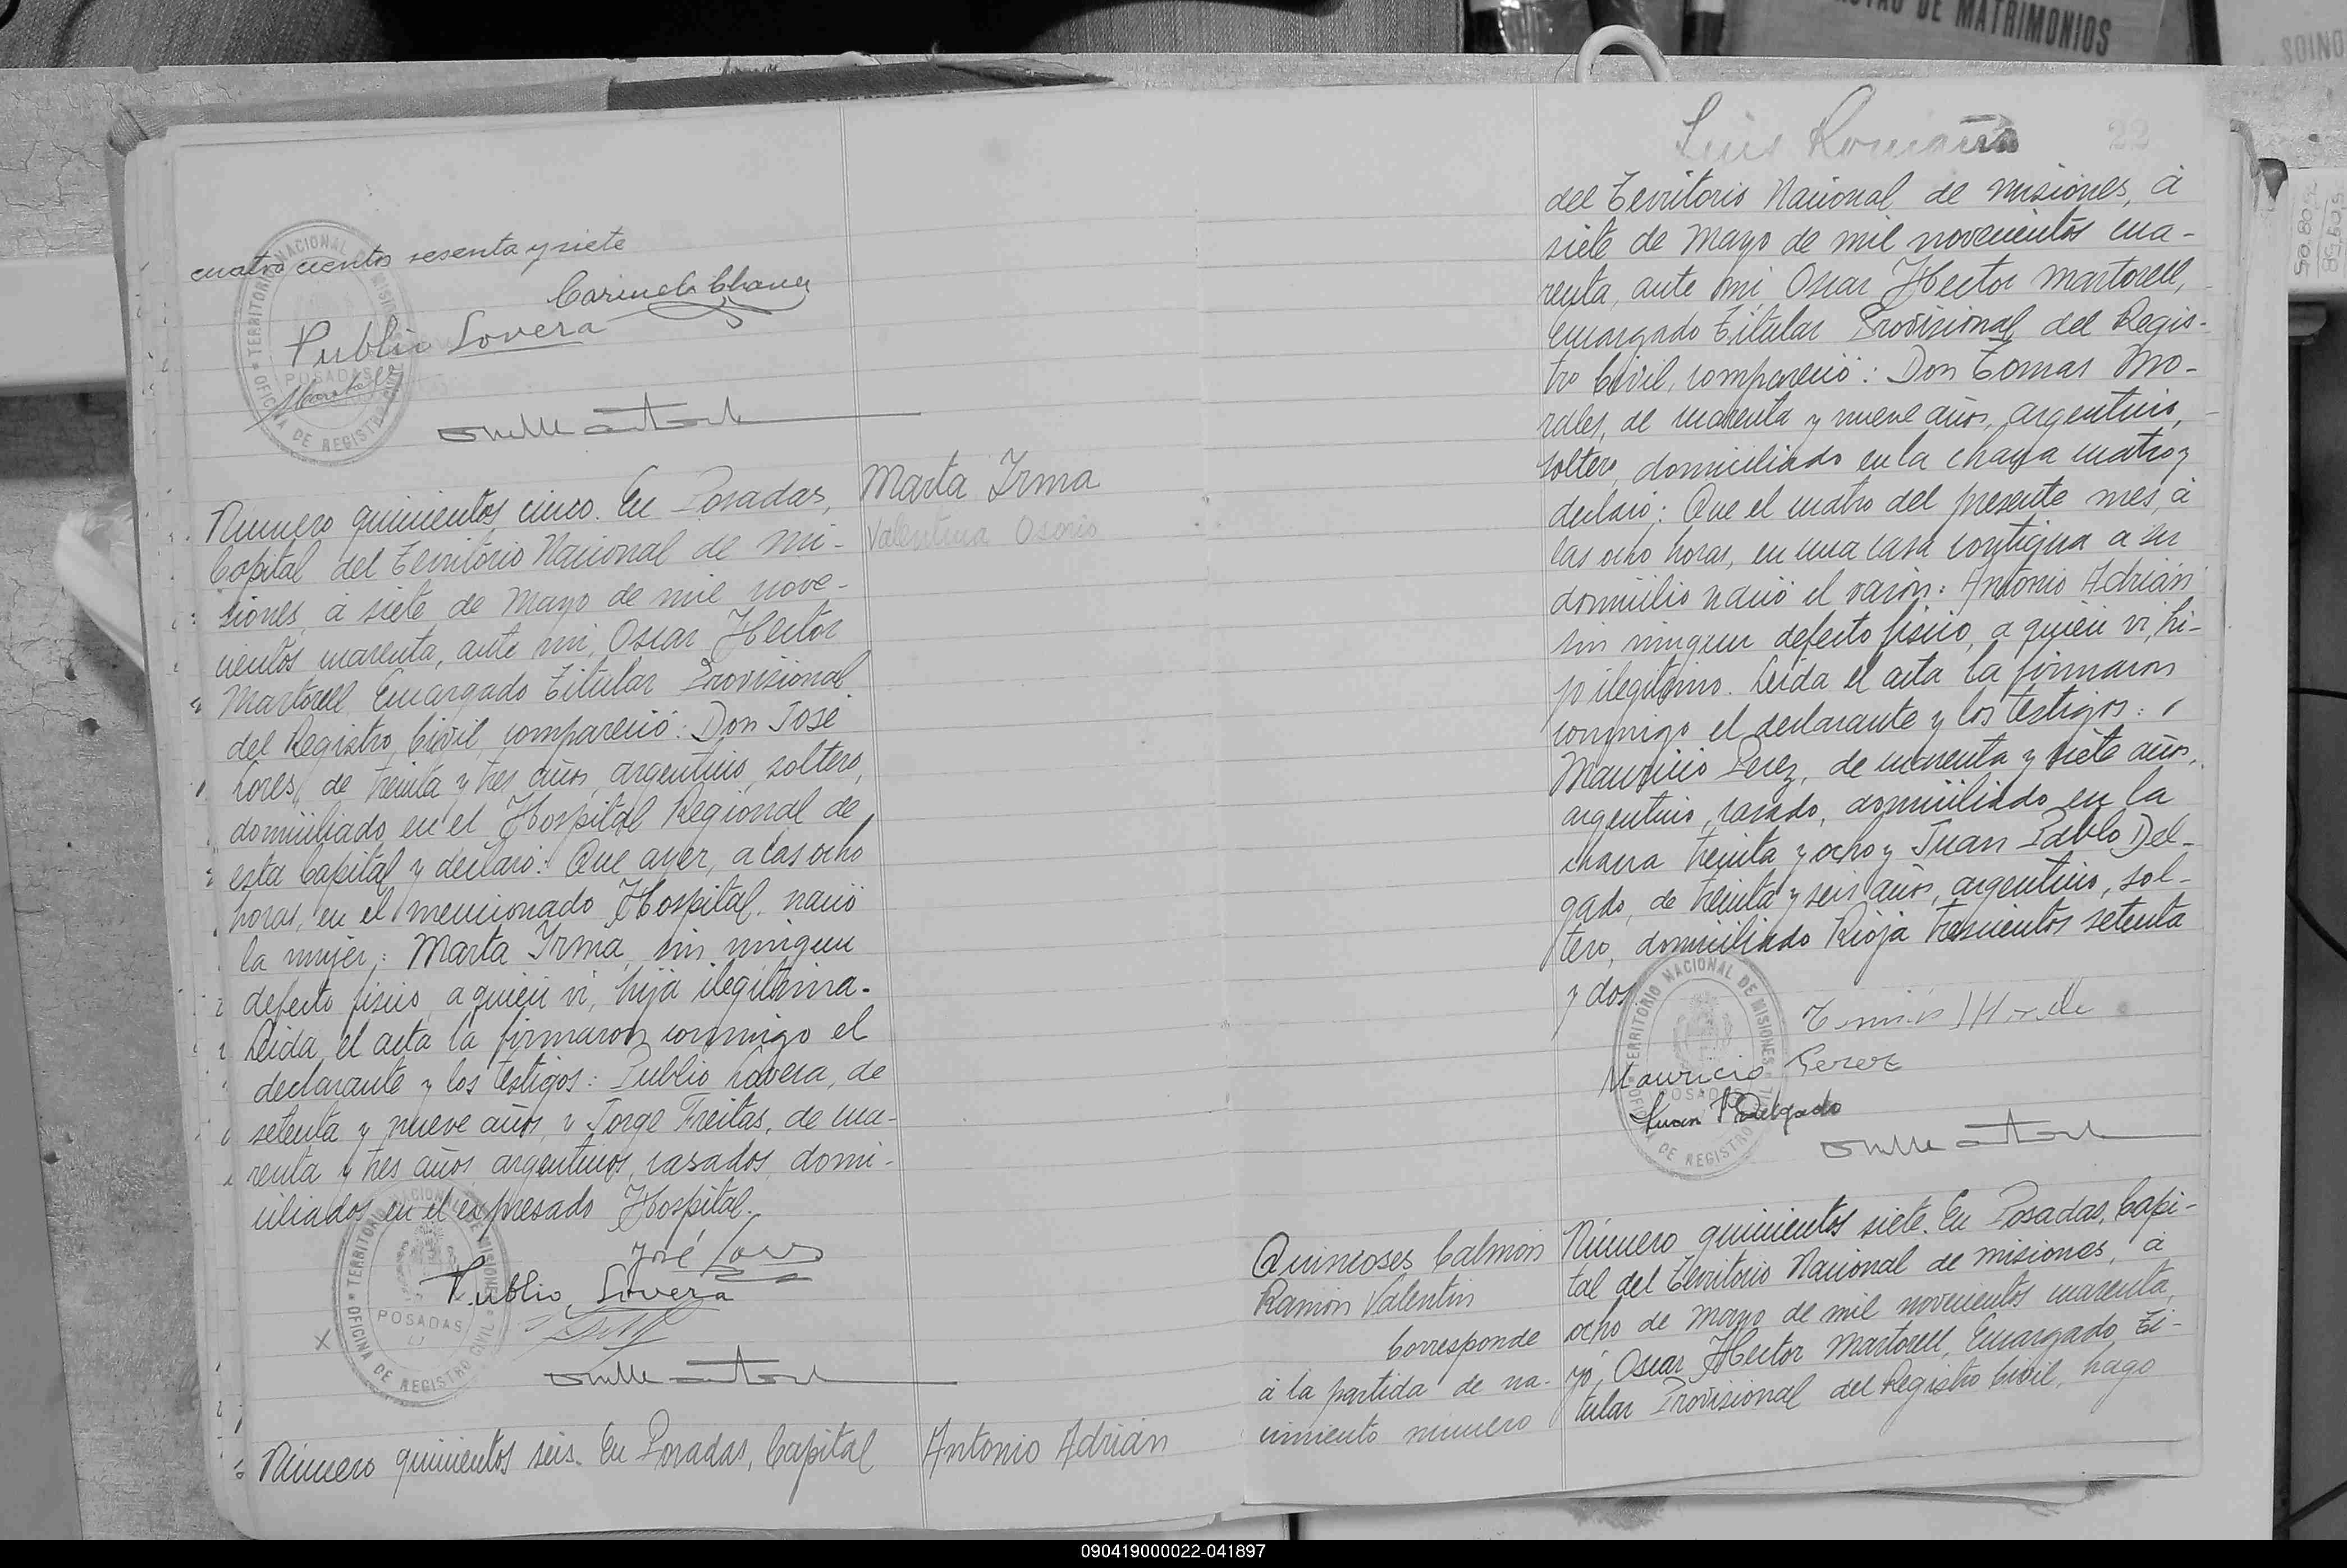 OFICINA DE REGISTRO CIVIL TERRITORIO NACIONAL DE MISIONES
POSADAS
cuatro cientos sesenta y siete
Publio Lovera
Número quinientos cinco. En Posadas,
Capital del Territorio Nacional de Mi-
siones, á siete de Mayo de mil nove-
cientos cuarenta, ante mi, Oscar Hector
Martorell Encargado Titular Provisional
del Registro Civil, compareció: Don José
Lores, de treinta y tres años, argentino, soltero,
domiciliado en el Hospital Regional de
esta Capital y declaró: Que ayer, a las ocho
horas, en el mencionado Hospital, nació
la mujer: Marta Irma, sin ningun
defecto fisico, a quien vi, hija ilegitima.
Leida el acta la firmaron conmigo el
declarante y los testigos: Publio Lovera, de
setenta y nueve años, y Jorge Freitas, de cua-
renta y tres años, argentinos, casados, domi-
ciliados en el expresado Hospital.
José Lores
Publio Lovera
OFICINA DE REGISTRO CIVIL TERRITORIO NACIONAL DE MISIONES
POSADAS
Número quinientos seis. En Posadas, Capital
Marta Irma
Valentina Osorio
Antonio Adrián
Luis Romaña
22
del Territorio Nacional de Misiones, á
siete de Mayo de mil novecientos cua-
renta, ante mi, Oscar Hector Martorell,
Encargado Titular Provisional del Regis-
tro Civil, compareció: Don Tomas Mo-
rales, de cuarenta y nueve años, argentino,
soltero, domiciliado en la chacra cuatro y
declaró: Que el cuatro del presente mes, á
las ocho horas, en una casa contigua a su
domicilio nació el varón: Antonio Adrián
sin ningun defecto fisico, a quien vi, hi-
jo ilegitimo. Leida el acta la firmaron
conmigo el declarante y los testigos:
Mauricio Perez, de cuarenta y siete años,
argentino, casado, domiciliado en la
chacra treinta y ocho y Juan Pablo Del-
gado, de treinta y seis años, argentino, sol-
tero, domiciliado Rioja trescientos setenta
y dos.
Mauricio Perez
Juan P Delgado
OFICINA DE REGISTRO TERRITORIO NACIONAL DE MISIONES
POSADAS
Quincoses Calmon
Ramón Valentin
Corresponde
á la partida de na-
cimiento número
Número quinientos siete. En Posadas, Capi-
tal del Territorio Nacional de Misiones, á
ocho de Mayo de mil novecientos cuarenta,
yo, Oscar Hector Martorell, Encargado Ti-
tular Provisional del Registro Civil, hago
DE MATRIMONIOS
090419000022-041897